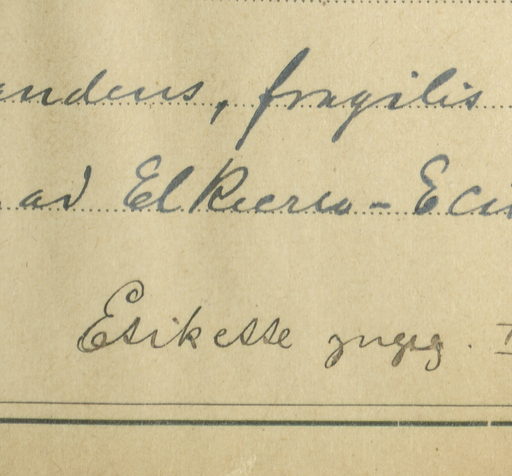 andens, fragilis
ad El Recreo - Eci
Etikette zugeg. I